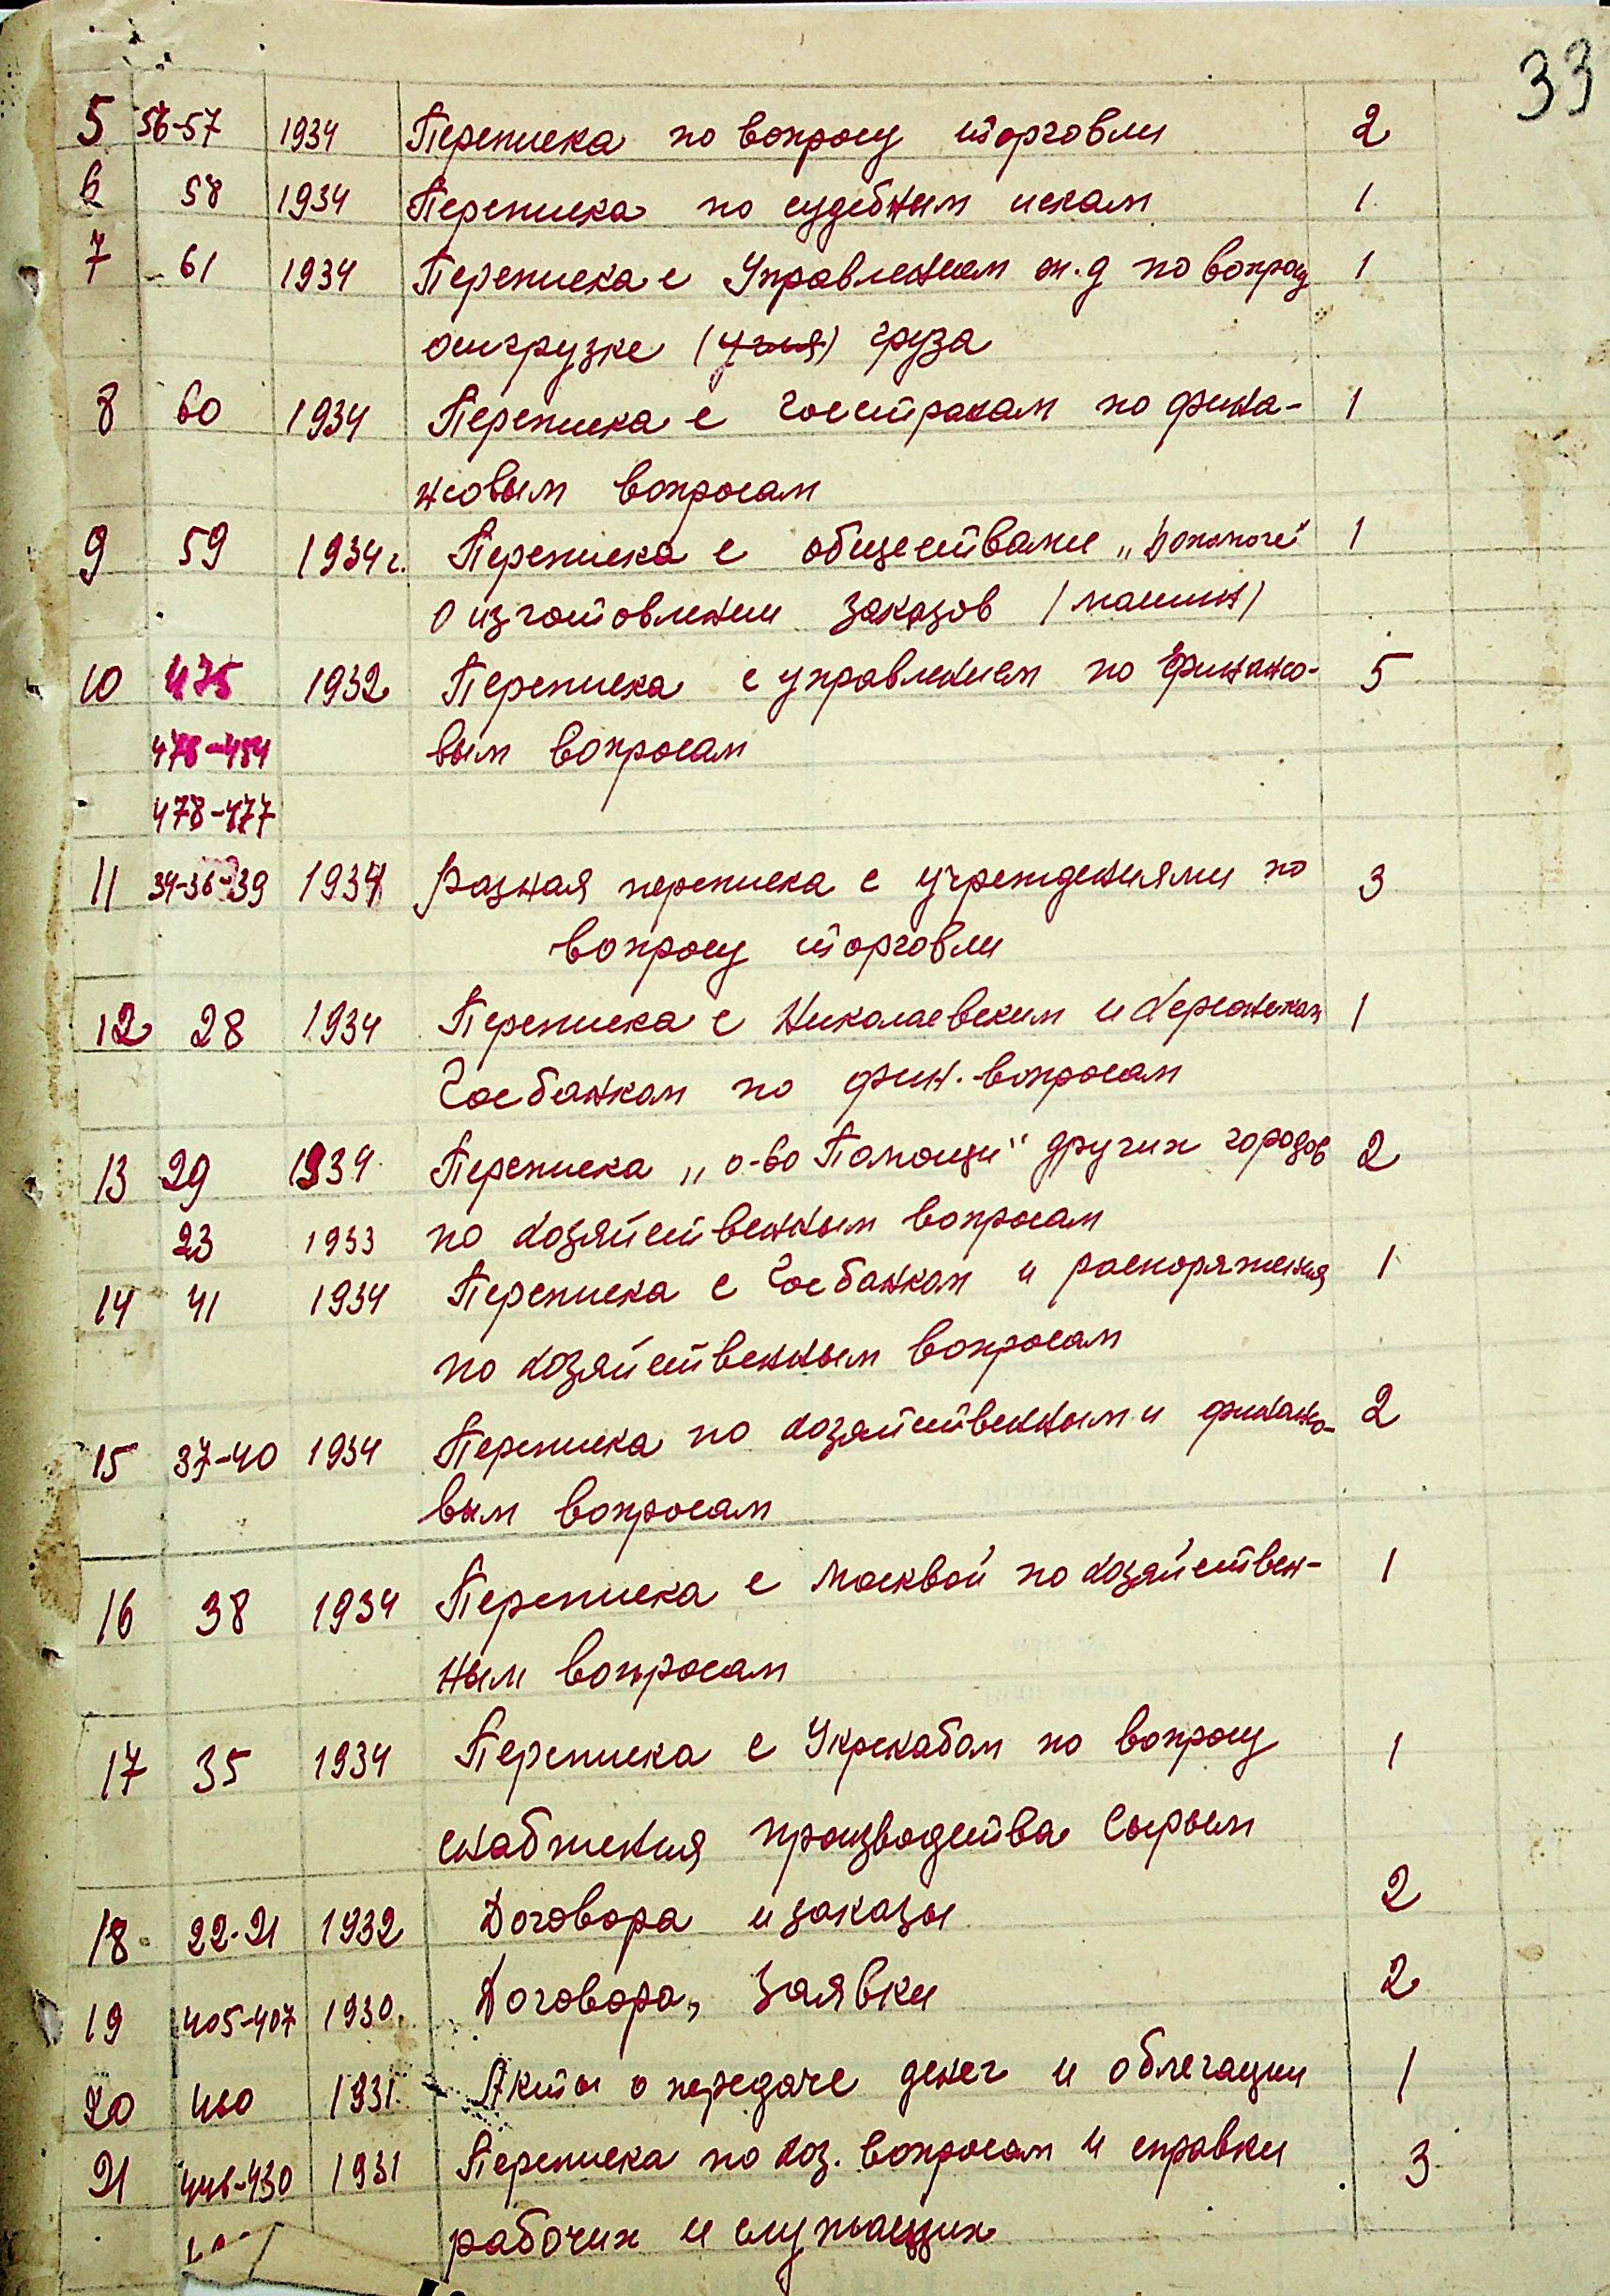 33
5 56-57 1934 Переписка по вопросу торговли 2
6 58 1934 Переписка по судебным искам 1
7 61 1934 Переписка с Управлением ж.д по вопросу 1
отгрузке (угля) груза
8 60 1934 Переписка с Госстрахом по фина-
нсовым вопросам 1
9 59 1934 г. Переписка с обществами „Допомоги" 1
о изготовлении заказов (машин)
10 475 1932 Переписка с управлением по финансо- 5
478-477 вым вопросам
11 34-36-39 1934 Разная переписка с учреждениями по 3
вопросу торговли
12 28 1934 Переписка с Николаевским и Херсонским 1
Госбанком по фин. вопросам
13 29 1934 Переписка „о-во Помощи" других городов 2
23 1933 по хозяйственным вопросам
14 41 1934 Переписка с Госбанком и распоряжения 1
по хозяйственным вопросам
15 37-40 1934 Переписка по хозяйственным и финансо- 2
вым вопросам
16 38 1934 Переписка с Москвой по хозяйствен- 1
ным вопросам
17 35 1934 Переписка с Укрснабом по вопросу 1
снабжения производства сырьем
18 22-21 1932 Договора и заказы 2
19 405-407 1930 Договора, Заявки 2
20 1931 Акты о передаче денег и облегации 1
21 1931 Переписка по хоз. вопросам и справки 3
рабочих и служащих